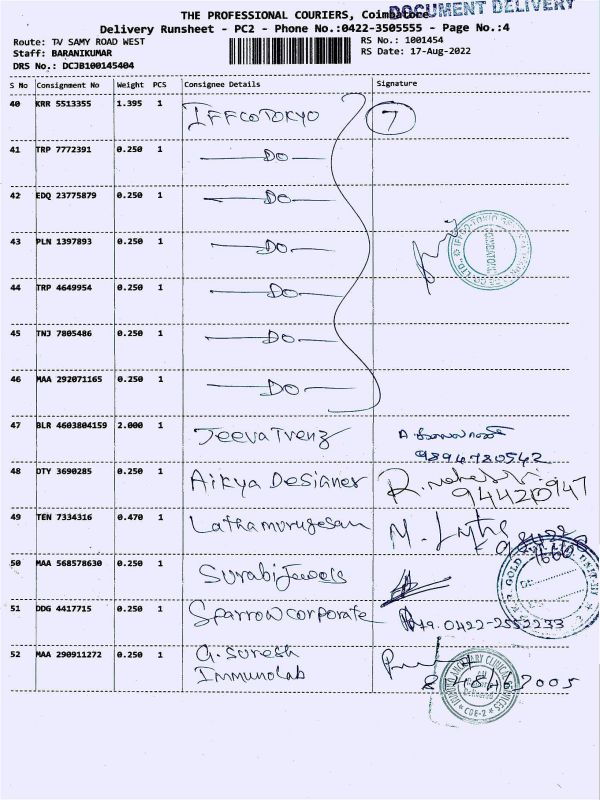 THE PROFESSIONAL COURIERS, Coimbatore
DOCUMENT DELIVERY
Delivery Runsheet - PC2 - Phone No.:0422-3505555 - Page No.:4
Route: TV SAMY ROAD WEST
RS No.: 1001454
Staff: BARANIKUMAR
RS Date: 17-Aug-2022
DRS No.: DCJB100145404
S No Consignment No Weight PCS Consignee Details Signature
40 KRR 5513355 1.395 1 IFFCO TOKYO 7
41 TRP 7772391 0.250 1 DO
42 EDQ 23775879 0.250 1 DO
43 PLN 1397893 0.250 1 DO
44 TRP 4649954 0.250 1 DO
45 TNJ 7805486 0.250 1 DO
46 MAA 292071165 0.250 1 DO
47 BLR 4603804159 2.000 1 Jeeva Trenz
9894780542
48 DTY 3690285 0.250 1 Aikya Designer
94420947
49 TEN 7334316 0.470 1 Lathamurugesan
50 MAA 568578630 0.250 1 Surabi Jewels
51 DDG 4417715 0.250 1 Sparrow corporate 0422-2552233
52 MAA 290911272 0.250 1 G. Suresh
Immunolab